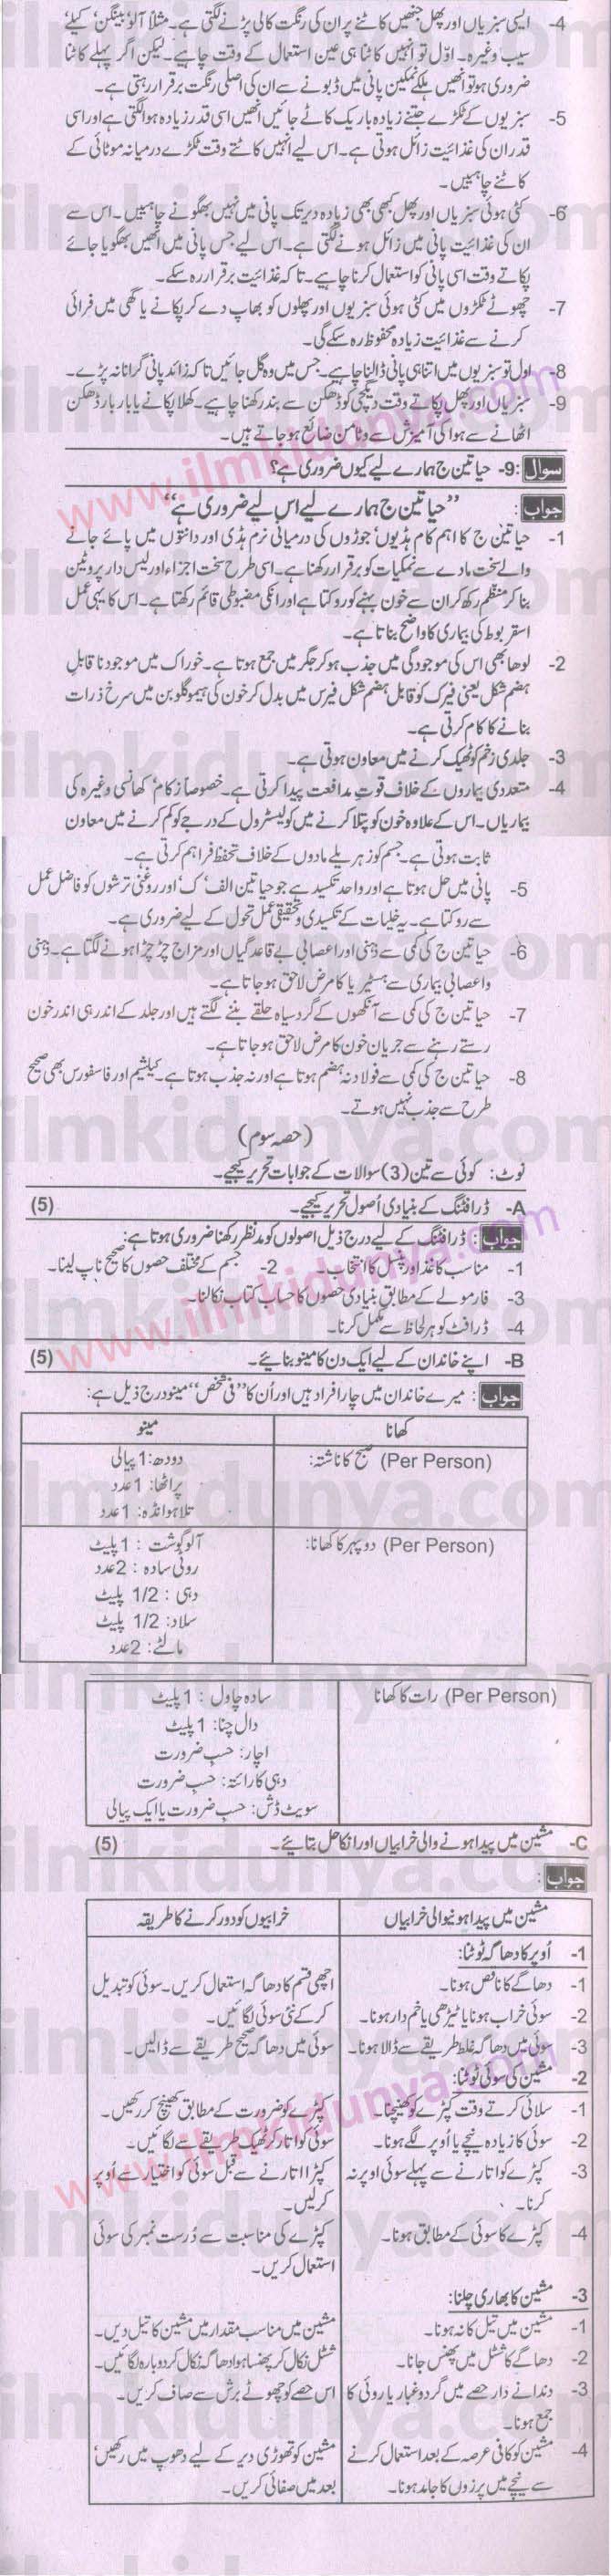 4- ایسی سبزیاں اور پھل جنھیں کاٹنے پر ان کی رنگت کالی پڑنے لگتی ہے۔ مثلاً آلو، بینگن، کیلے
سیب وغیرہ۔ اوّل تو انہیں کاٹنا ہی عین استعمال کے وقت چاہیے۔ لیکن اگر پہلے کاٹنا
ضروری ہو تو انھیں ہلکے نمکین پانی میں ڈبونے سے ان کی اصلی رنگت برقرار رہتی ہے۔
5- سبزیوں کے ٹکڑے جتنے زیادہ باریک کاٹے جائیں انھیں اسی قدر زیادہ ہوا لگتی ہے اور اسی
قدر ان کی غذائیت زائل ہوتی ہے۔ اس لیے انہیں کاٹتے وقت ٹکڑے درمیانہ موٹائی کے
کاٹنے چاہییں۔
6- کٹی ہوئی سبزیاں اور پھل کبھی بھی زیادہ دیر تک پانی میں نہیں بھگونے چاہییں۔ اس سے
ان کی غذائیت پانی میں زائل ہونے لگتی ہے۔ اس لیے جس پانی میں انھیں بھگویا جائے
پکاتے وقت اسی پانی کو استعمال کرنا چاہیے۔ تاکہ غذائیت برقرار رہ سکے۔
7- چھوٹے ٹکڑوں میں کٹی ہوئی سبزیوں اور پھلوں کو بھاپ دے کر پکانے یا گھی میں فرائی
کرنے سے غذائیت زیادہ محفوظ رہ سکے گی۔
8- اول تو سبزیوں میں اتنا ہی پانی ڈالنا چاہیے۔ جس میں وہ گل جائیں تاکہ زائد پانی گرانا نہ پڑے۔
9- سبزیاں اور پھل پکاتے وقت دیگچی کو ڈھکن سے بند رکھنا چاہیے۔ کھلا پکانے یا بار بار ڈھکن
اٹھانے سے ہوا کی آمیزش سے وٹامن ضائع ہو جاتے ہیں۔
سوال:9- حیاتین ج ہمارے لیے کیوں ضروری ہے؟
جواب: "حیاتین ج ہمارے لیے اس لیے ضروری ہے"
1- حیاتین ج کا اہم کام ہڈیوں، جوڑوں کی درمیانی نرم ہڈی اور دانتوں میں پائے جانے
والے سخت مادے سے نمکیات کو برقرار رکھنا ہے۔ اسی طرح سخت اجزاء اور لیس دار پروٹین
بنا کر منظم رکھ کر ان سے خون بہنے کو روکتا ہے اور انکی مضبوطی قائم رکھتا ہے۔ اس کا یہی عمل
اسقربوط کی بیماری کا واضح بناتا ہے۔
2- لوھا بھی اس کی موجودگی میں جذب ہو کر جگر میں جمع ہوتا ہے۔ خوراک میں موجود ناقابلِ
ہضم شکل یعنی فیرک کو قابل ہضم شکل فیرس میں بدل کر خون کی ہیموگلوبن میں سرخ ذرات
بنانے کا کام کرتی ہے۔
3- جلدی زخم کو ٹھیک کرنے میں معاون ہوتی ہے۔
4- متعددی بیماروں کے خلاف قوتِ مدافعت پیدا کرتی ہے۔ خصوصاً زکام، کھانسی وغیرہ کی
بیماریاں۔ اس کے علاوہ خون کو پتلا کرنے میں کولیسٹرول کے درجے کو کم کرنے میں معاون
ثابت ہوتی ہے۔ جسم کو زہریلے مادوں کے خلاف تحفظ فراہم کرتی ہے۔
5- پانی میں حل ہوتا ہے اور واحد تکسید ہے جو حیاتین الف، ک، اور روغنی ترشوں کو فاضل عمل
سے روکتا ہے۔ یہ خلیات کے تکسیدی و تحقیقی عمل تحول کے لیے ضروری ہے۔
6- حیاتین ج کی کمی سے ذہنی اور اعصابی بے قاعدگیاں اور مزاج چڑچڑا ہونے لگتا ہے۔ ذہنی
و اعصابی بیماری سے ہسٹیریا کا مرض لاحق ہو جاتا ہے۔
7- حیاتین ج کی کمی سے آنکھوں کے گرد سیاہ حلقے بننے لگتے ہیں اور جلد کے اندر ہی اندر خون
رستے رہنے سے جریان خون کا مرض لاحق ہو جاتا ہے۔
8- حیاتین ج کی کمی سے فولاد نہ ہضم ہوتا ہے اور نہ جذب ہوتا ہے۔ کیلشیم اور فاسفورس بھی صحیح
طرح سے جذب نہیں ہوتے۔
(حصہ سوم)
نوٹ: کوئی سے تین (3) سوالات کے جوابات تحریر کیجیے۔
A- ڈرافٹنگ کے بنیادی اُصول تحریر کیجیے۔ (5)
جواب: ڈرافٹنگ کے لیے درج ذیل اصولوں کو مدنظر رکھنا ضروری ہوتا ہے:
1- مناسب کاغذ اور پنسل کا انتخاب۔ 2- جسم کے مختلف حصوں کا صحیح ناپ لینا۔
3- فارمولے کے مطابق بنیادی حصوں کا حساب کتاب نکالنا۔
4- ڈرافٹ کو ہر لحاظ سے مکمل کرنا۔
B- اپنے خاندان کے لیے ایک دن کا مینو بنائیے۔ (5)
جواب: میرے خاندان میں چار افراد ہیں اور اُن کا "فی شخص" مینو درج ذیل ہے:
کھانا مینو
صبح کا ناشتہ: (Per Person) دودھ: 1 پیالی
پراٹھا: 1 عدد
تلا ہوا انڈہ: 1 عدد
دوپہر کا کھانا: (Per Person) آلو گوشت: 1 پلیٹ
روٹی سادہ: 2 عدد
دہی: 1/2 پلیٹ
سلاد: 1/2 پلیٹ
مالٹے: 2 عدد
رات کا کھانا (Per Person) سادہ چاول: 1 پلیٹ
دال چنا: 1 پلیٹ
اچار: حسبِ ضرورت
دہی کا رائتہ: حسبِ ضرورت
سویٹ ڈش: حسبِ ضرورت یا ایک پیالی
C- مشین میں پیدا ہونے والی خرابیاں اور انکا حل بتائیے۔ (5)
جواب:
مشین میں پیدا ہونیوالی خرابیاں خرابیوں کو دور کرنے کا طریقہ
1- اُوپر کا دھاگہ ٹوٹنا:
1- دھاگے کا ناقص ہونا۔ اچھی قسم کا دھاگہ استعمال کریں۔ سوئی کو تبدیل
2- سوئی خراب ہونا یا ٹیڑھی یا خم دار ہونا۔ کر کے نئی سوئی لگائیں۔
3- سوئی میں دھاگہ غلط طریقے سے ڈالا ہونا۔ سوئی میں دھاگہ صحیح طریقے سے ڈالیں۔
2- مشین کی سوئی ٹوٹنا:
1- سلائی کرتے وقت کپڑے کو کھینچنا۔ کپڑے کو ضرورت کے مطابق کھینچ کر رکھیں۔
2- سوئی کا زیادہ نیچے یا اُوپر لگے ہونا۔ سوئی کو اتار کر ٹھیک طریقے سے لگائیں۔
3- کپڑے کو اتارنے سے پہلے سوئی اوپر نہ کپڑا اتارنے سے قبل سوئی کو اختیار سے اُوپر
کرنا۔ کر لیں۔
4- کپڑے کا سوئی کے مطابق ہونا۔ کپڑے کی مناسبت سے دُرست نمبر کی سوئی
استعمال کریں۔
3- مشین کا بھاری چلنا:
1- مشین میں تیل کا نہ ہونا۔ مشین میں مناسب مقدار میں مشین کا تیل دیں۔
2- دھاگے کا شٹل میں پھنس جانا۔ شٹل نکال کر پھنسا ہوا دھاگہ نکال کر دوبارہ لگائیں۔
3- دندانے دار حصے میں گرد و غبار یا روئی کا اس حصے کو چھوٹے برش سے صاف کریں۔
جمع ہونا۔
4- مشین کو کافی عرصہ کے بعد استعمال کرنے مشین کو تھوڑی دیر کے لیے دھوپ میں رکھیں،
سے نیچے میں پرزوں کا جامد ہونا۔ بعد میں صفائی کریں۔
www.ilmkidunya.com